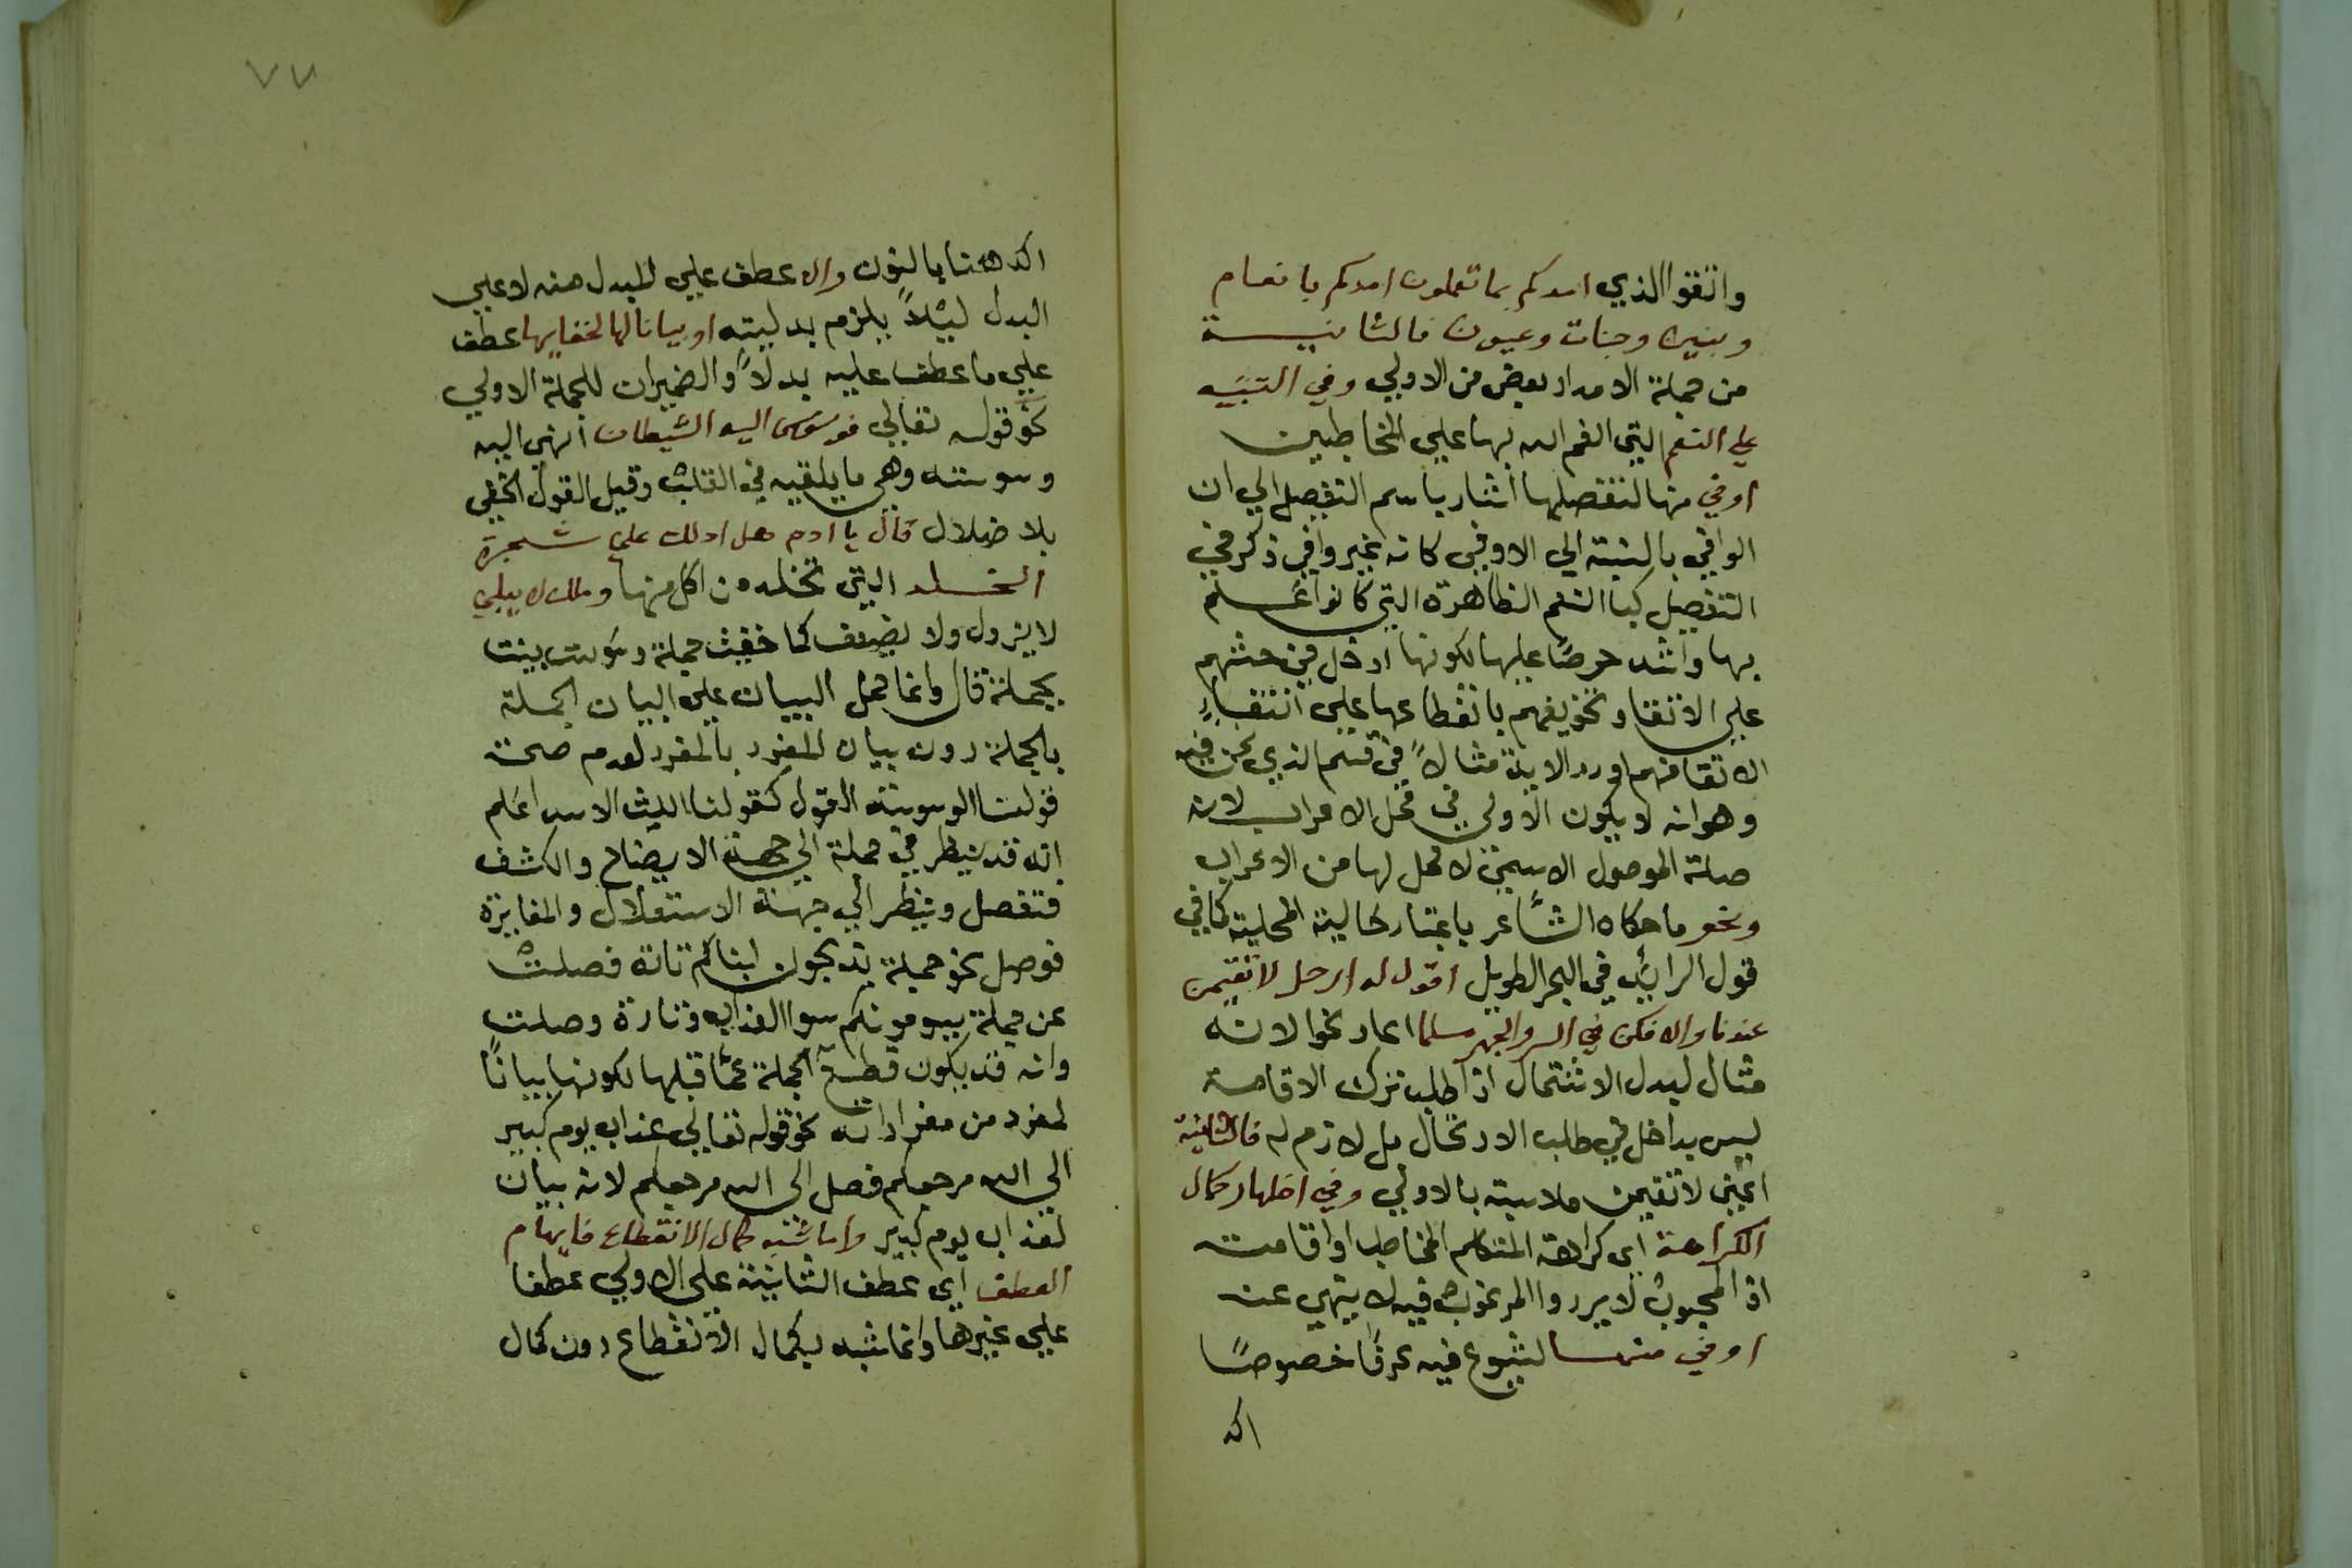 واتقوا الذي امدكم بما تعلمون امدكم بانعام
وبنين وجنات وعيون فالثانيــة
من جملة الامداد بعض من الاولي وفي التنبيه
علي النعم التي انعم الله بها علي المخاطبين
اوفي منها لتفصيلها اشار باسم التفصيل الي ان
الوافي بالنسبة الي الاوفي كانه غير وافي ذكر في
التفصيل كبا النعم الظاهرة التي كانوا اعلم
بها واشد حرصًا عليها لكونها ادخل في حثهم
علي الاتقا وتخويفهم بانقطاعها علي انتفاءِ
الاتقا منهم اورد الاية مثالاً في قسم الذي نحن فيه
وهو انه لا يكون الاولي في محل الاعراب لانه
صلة الموصول الاسمي لا محل لها من الاعراب
ونحو ما حكاه الشاعر باعتبار خالية المحلية كما في
قول الرائي في البحر الطويل اقول له ارحل لا تقيمن
عندنا والا فكن في السر والجهر مسلما اعاد نحو لانه
مثال لبدل الاشتمال اذ طلب ترك الاقامة
ليس بداخل في طلب الارتحال بل لازم له فالثانية
اعني لا تقيمن ملابسة بالاولي وفي اظهار كمال
الكراهة اي كراهة المتكلم المخاطب او اقامته
اذ المحبوب لا يرد والمرغوب فيه لا ينهي عنه
اوفي منهــا لشيوع فيه عرفًا خصوصًا
اكد
٧٧
اكد ههنا بالنون والا عطف علي المبدل منه لا علي
البدل ليئلاً يلزم بدليته او بيانا لها لخفايها عطف
علي ما عطف عليه بدلاً والضميران للجملة الاولي
نحو قوله تعالي فوسوس اليه الشيطان انهي اليه
وسوسته وهي ما يلقيه في القلب وقيل القول الخفي
بلا ضلال قال يا ادم هل ادلك علي شجرة
الخــلد التي تخلد من اكل منها وملك لا يبلي
لا يزول ولا يضعف كما خفيت جملة وسوست بينت
بجملة قال وانما حمل البيان علي البيان الجملة
بالجملة دون بيان المفرد بالمفرد لعدم صحة
قولنا الوسوسة القول كقولنا الليث الاسد اعلم
انه قد ينظر في جملة الي جهة الايضاح والكشف
فتفصل وينظر الي جهة الاستقلال والمغايرة
فوصل نحو جملة يذبحون ابناكم تارة فصلت
عن جملة يسومونكم سوا العذاب وتارة وصلت
وانه قد يكون قطع الجملة عما قبلها لكونها بيانًا
لمفرد من مفراداته نحو قوله تعالي عذاب يوم كبير
الي الله مرجعكم فصل الي الله مرجعكم لانه بيان
لعذاب يوم كبير واما شبه كمال الانقطاع فايهام
العطف اي عطف الثانية علي الاولي عطفا
علي غيرها وانما شبه بكمال الانقطاع دون كمال